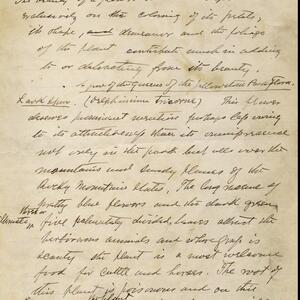 exclusively on the coloring of the petals,
its shape, and demeanor and the foliage
of the plant contribute much in adding
to or detracting from its beauty.
of the queens of the Yellowstone Park flora.
Lark spur. (Delphinium bicorne) This flower
deserves prominent mention perhaps less owing
to its attractiveness than its omnipresence
not only in the park but all over the
mountains and sandy plains of the
Rocky Mountain States. The long raceme of
pretty blue flowers and the dark green
five palmately divided leaves attract the
herbivorous animals and whose grasp is
scanty the plant is a most welcome
food for cattle and horses. The root of
this plant is poisonous and on this